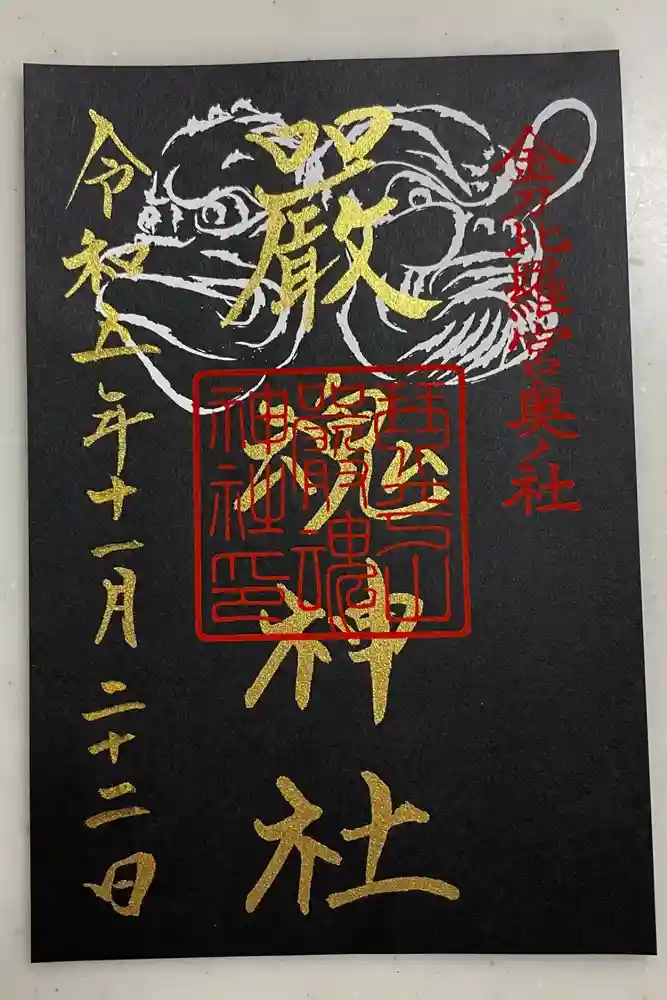 金刀比羅宮奥ノ社
嚴魂神社
琴平山
嚴魂
神社印
令和五年十一月二十二日